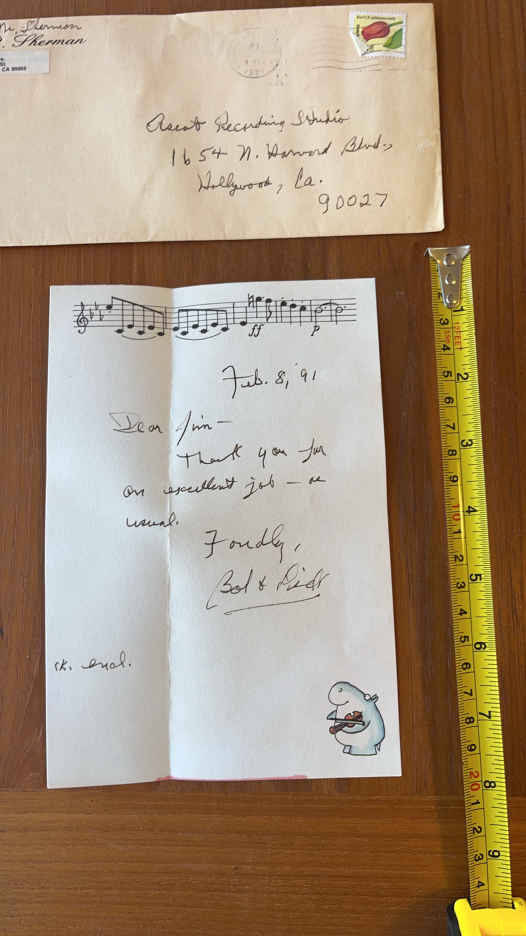 Sherman
P. Sherman
CA
Ascot Recording Studio
1654 N. Harvard Blvd.,
Hollywood, Ca.
90027
ff
p
Feb. 8, '91
Dear Jim —
Thank you for
an excellent job — as
usual.
Fondly,
Bob &
ck. encl.
FEET
1
2
3
4
5
6
7
8
9
10
20